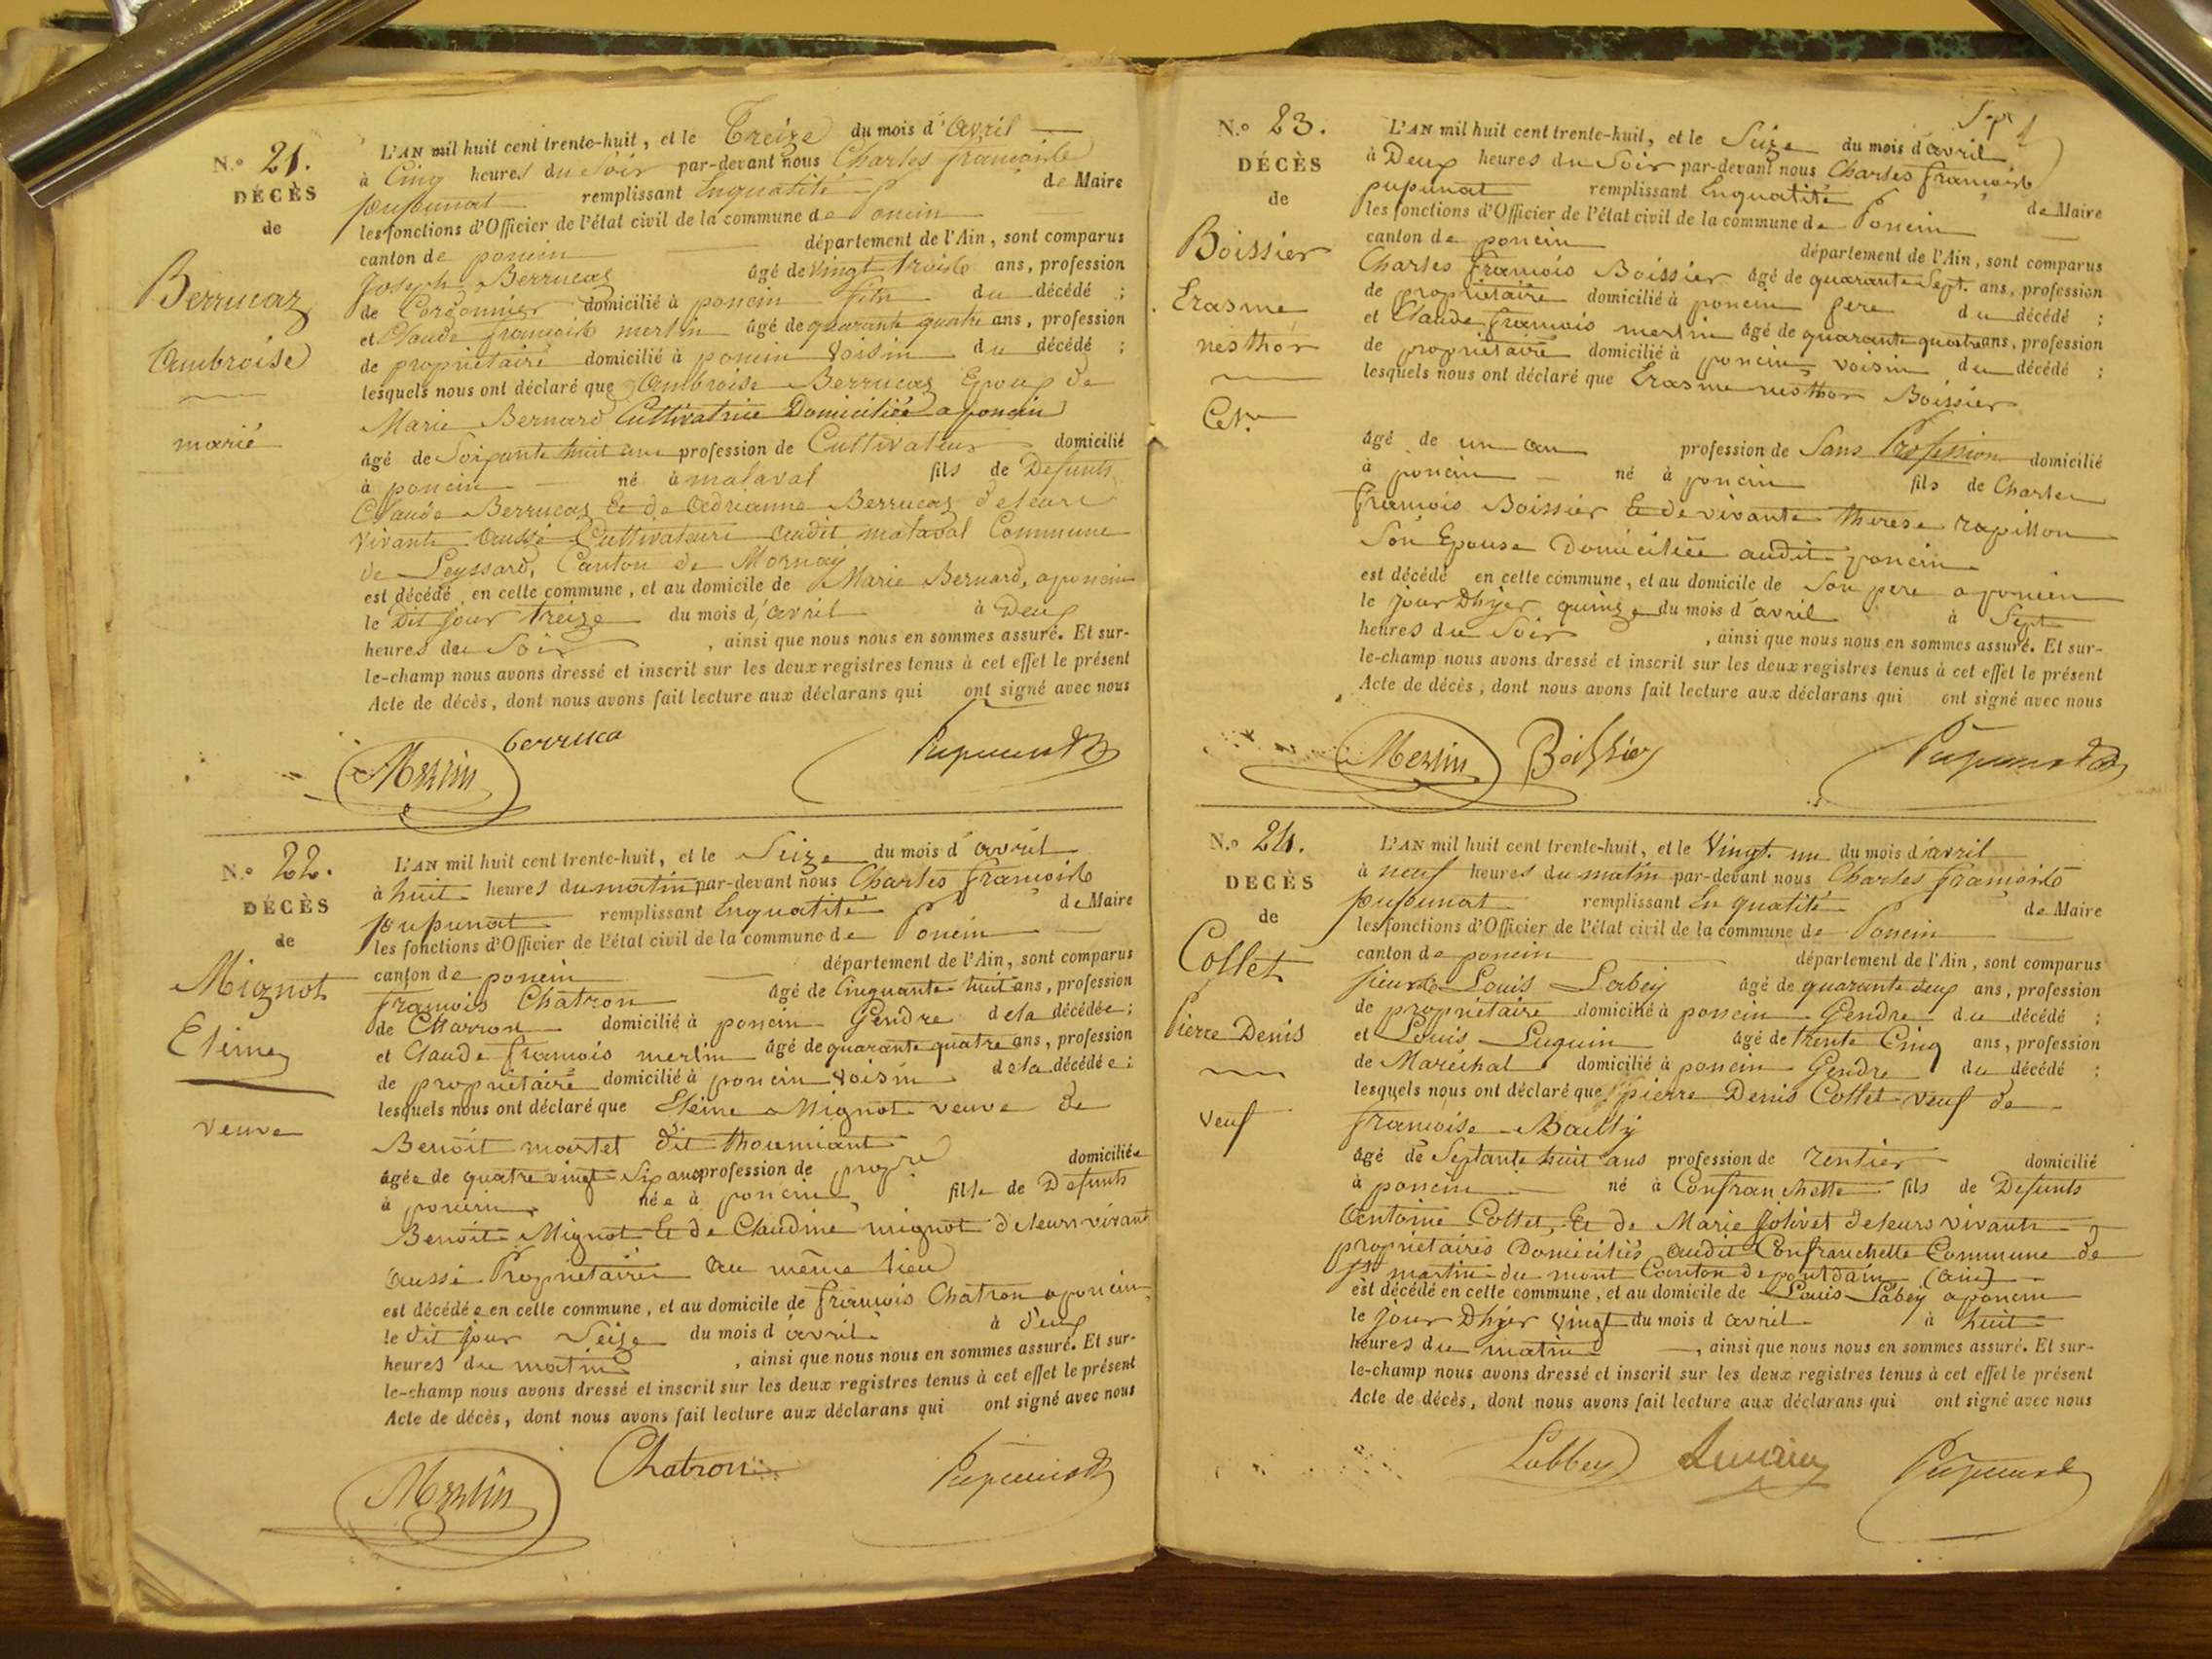 N.o 21.
DÉCÈS
de
Berrucaz
Ambroise
marié
L'AN mil huit cent trente-huit, et le Treize du mois d'avril
à Cinq heures du Soir par-devant nous Charles françois
pupunat remplissant Enqualité de Maire
les fonctions d'Officier de l'état civil de la commune de Poncin
canton de poncin département de l'Ain, sont comparus
Joseph Berrucaz âgé de vingt trois ans, profession
de Cordonnier domicilié à poncin fils du décédé ;
et Claude françois merlin âgé de quarante quatre ans, profession
de propriétaire domicilié à poncin Voisin du décédé ;
lesquels nous ont déclaré que Ambroise Berrucaz Epoux de
Marie Bernard Cultivatrice Domiciliée a poncin
âgé de Soixante huit ans profession de Cultivateur domicilié
à poncin né à malaval fils de Defunts
Claude Berrucaz Et de Adrianne Berrucaz de leurs
vivants Aussi Cultivateurs audit malaval Commune
de Leyssard, Canton de Mornay
est décédé en cette commune, et au domicile de Marie Bernard, a poncin
le Dit jour treize du mois d'avril à Deux
heures du Soir, ainsi que nous nous en sommes assuré. Et sur-
le-champ nous avons dressé et inscrit sur les deux registres tenus à cet effet le présent
Acte de décès, dont nous avons fait lecture aux déclarans qui ont signé avec nous
Merlin berruca Pupunat
N.o 22.
DÉCÈS
de
Mignot
veuve
L'AN mil huit cent trente-huit, et le Seize du mois d'avril
à huit heures du matin par-devant nous Charles françois
pupunat remplissant Enqualité de Maire
les fonctions d'Officier de l'état civil de la commune de Poncin
canton de poncin département de l'Ain, sont comparus
françois Chatron âgé de Cinquante huit ans, profession
de Charron domicilié à poncin Gendre de la décédée ;
et Claude françois merlin âgé de quarante quatre ans, profession
de propriétaire domicilié à poncin Voisin de la décédée ;
lesquels nous ont déclaré que Mignot veuve de
Benoit martet dit thoumiant
âgée de quatre vingt Six ans profession de propre domiciliée
à poncin née à poncin fille de Defunts
Benoit Mignot Et de Claudine mignot de leurs vivant
Aussi Propriétaires Au même lieu
est décédée en cette commune, et au domicile de françois Chatron a poncin
le dit jour Seize du mois d'avril à deux
heures du matin, ainsi que nous nous en sommes assuré. Et sur-
le-champ nous avons dressé et inscrit sur les deux registres tenus à cet effet le présent
Acte de décès, dont nous avons fait lecture aux déclarans qui ont signé avec nous
Merlin Chatron Pupunat
N.o 23.
DÉCÈS
de
Boissier
Erasme
nesthor
L'AN mil huit cent trente-huit, et le Seize du mois d'avril
à Deux heures du Soir par-devant nous Charles françois
pupunat remplissant Enqualité de Maire
les fonctions d'Officier de l'état civil de la commune de Poncin
canton de poncin département de l'Ain, sont comparus
Charles françois Boissier âgé de quarante Sept ans, profession
de propriétaire domicilié à poncin pere du décédé ;
et Claude françois merlin âgé de quarante quatre ans, profession
de propriétaire domicilié à poncin voisin du décédé ;
lesquels nous ont déclaré que Erasme nesthor Boissier
âgé de un an profession de Sans Profession domicilié
à poncin né à poncin fils de Charles
françois Boissier Et de vivante therese rapillon
Son Epouse Domiciliée audit poncin
est décédé en cette commune, et au domicile de Son pere a poncin
le jour Dhyer quinze du mois d'avril à Sept
heures du Soir, ainsi que nous nous en sommes assuré. Et sur-
le-champ nous avons dressé et inscrit sur les deux registres tenus à cet effet le présent
Acte de décès, dont nous avons fait lecture aux déclarans qui ont signé avec nous
Merlin Boissier Pupunat
N.o 24.
DÉCÈS
de
Collet
Pierre Denis
veuf
L'AN mil huit cent trente-huit, et le Vingt un du mois d'avril
à neuf heures du matin par-devant nous Charles françois
pupunat remplissant En qualité de Maire
les fonctions d'Officier de l'état civil de la commune de Poncin
canton de poncin département de l'Ain, sont comparus
Louis Labey âgé de quarante deux ans, profession
de propriétaire domicilié à poncin Gendre du décédé ;
et Louis Luquin âgé de trente Cinq ans, profession
de Maréchal domicilié à poncin Gendre du décédé ;
lesquels nous ont déclaré que pierre Denis Collet veuf de
françoise Bailly
âgé de Septante huit ans profession de rentier domicilié
à poncin né à Confranchette fils de Defunts
Antoine Collet Et de Marie Jolivet de leurs vivants
propriétaires Domiciliés audit Confranchette Commune de
st martin du mont Canton de pontdain (ain)
est décédé en cette commune, et au domicile de Louis Labey a poncin
le jour Dhyer vingt du mois d'avril à huit
heures du matin, ainsi que nous nous en sommes assuré. Et sur-
le-champ nous avons dressé et inscrit sur les deux registres tenus à cet effet le présent
Acte de décès, dont nous avons fait lecture aux déclarans qui ont signé avec nous
Labbey Pupunat